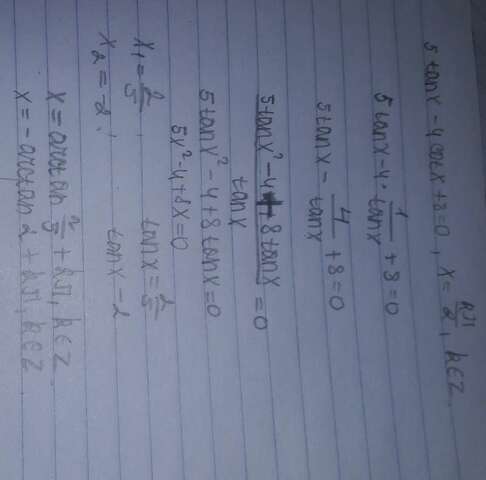 5 tanx - 4 cotx + 8 = 0, x = kπ/2, k ∈ Z.
5 tanx - 4 · 1/tanx + 8 = 0
5 tanx - 4/tanx + 8 = 0
5 tanx² - 4 + 8 tanx / tanx = 0
5 tanx² - 4 + 8 tanx = 0
5x² - 4 + 8x = 0
x₁ = 2/5, tanx = 2/5
x₂ = -2. tanx - 2
x = arctan 2/5 + kπ, k ∈ Z
x = - arctan 2 + kπ, k ∈ Z